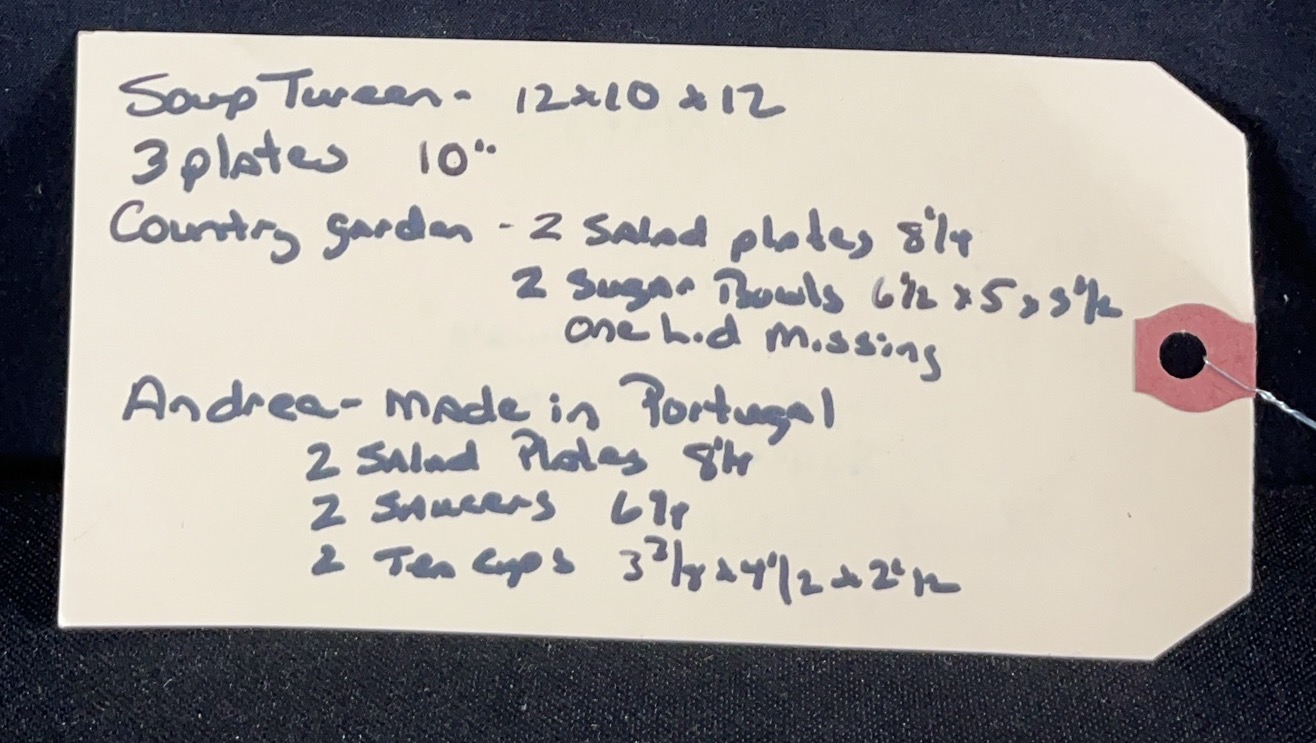 Soup Tureen - 12x10x12
3 plates 10"
Country garden - 2 Salad plates 8 1/4
2 Sugar Bowls 6 1/2 x 5 x 3 1/2
one Lid missing
Andrea - made in Portugal
2 Salad Plates 8 1/4
2 Saucers
2 Tea Cups 3 3/4 x 4 1/2 x 2 1/2